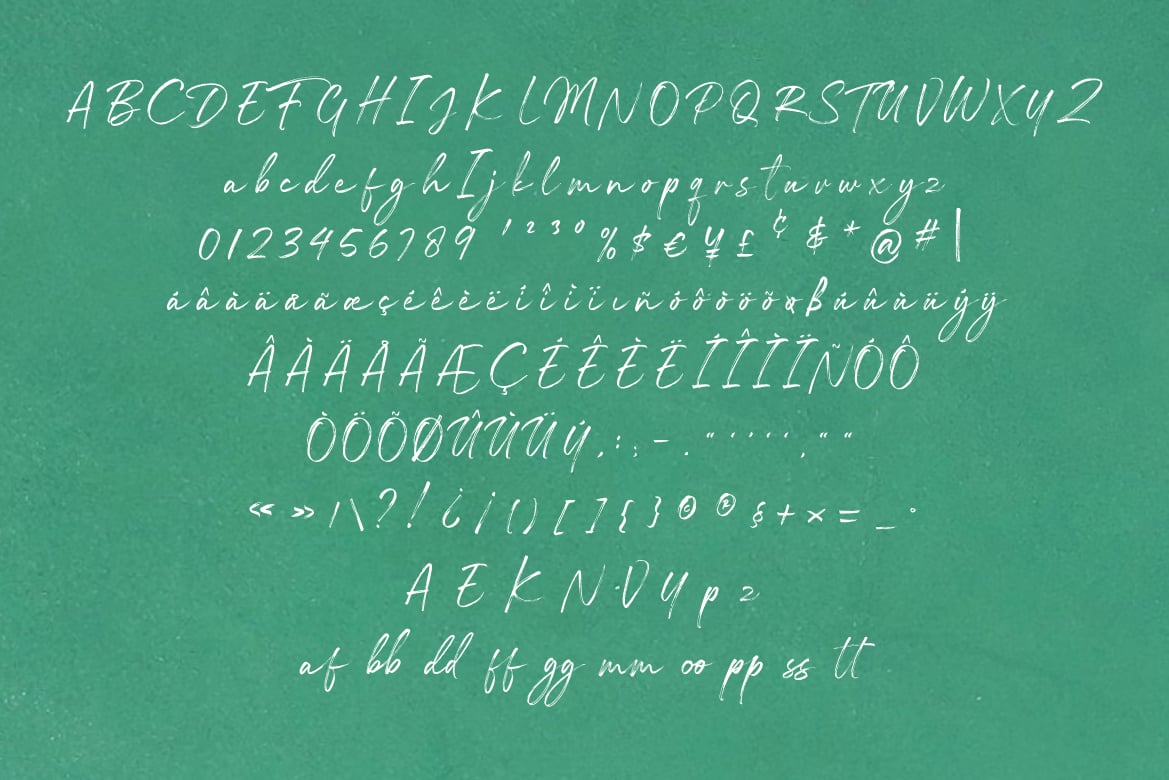 ABCDEFGHIJKLMNOPQRSTUVWXYZ
abcdefghIjklmnopqrstuvwxyz
0123456789 ¹²³⁰%$€¥£¢&*@#|
áâàäåãæçéêèëíîìïıñóôòöõøßúûùüýÿ
ÂÀÄÅÃÆÇÉÊÈËÍÎÌÏÑÓÔ
ÒÖÕØÛÙÜÝ,:;-.
«»/\?!¿¡()[]{}©®§+×=_°
A E K N V Y p z
af bb dd ff gg mm oo pp ss tt